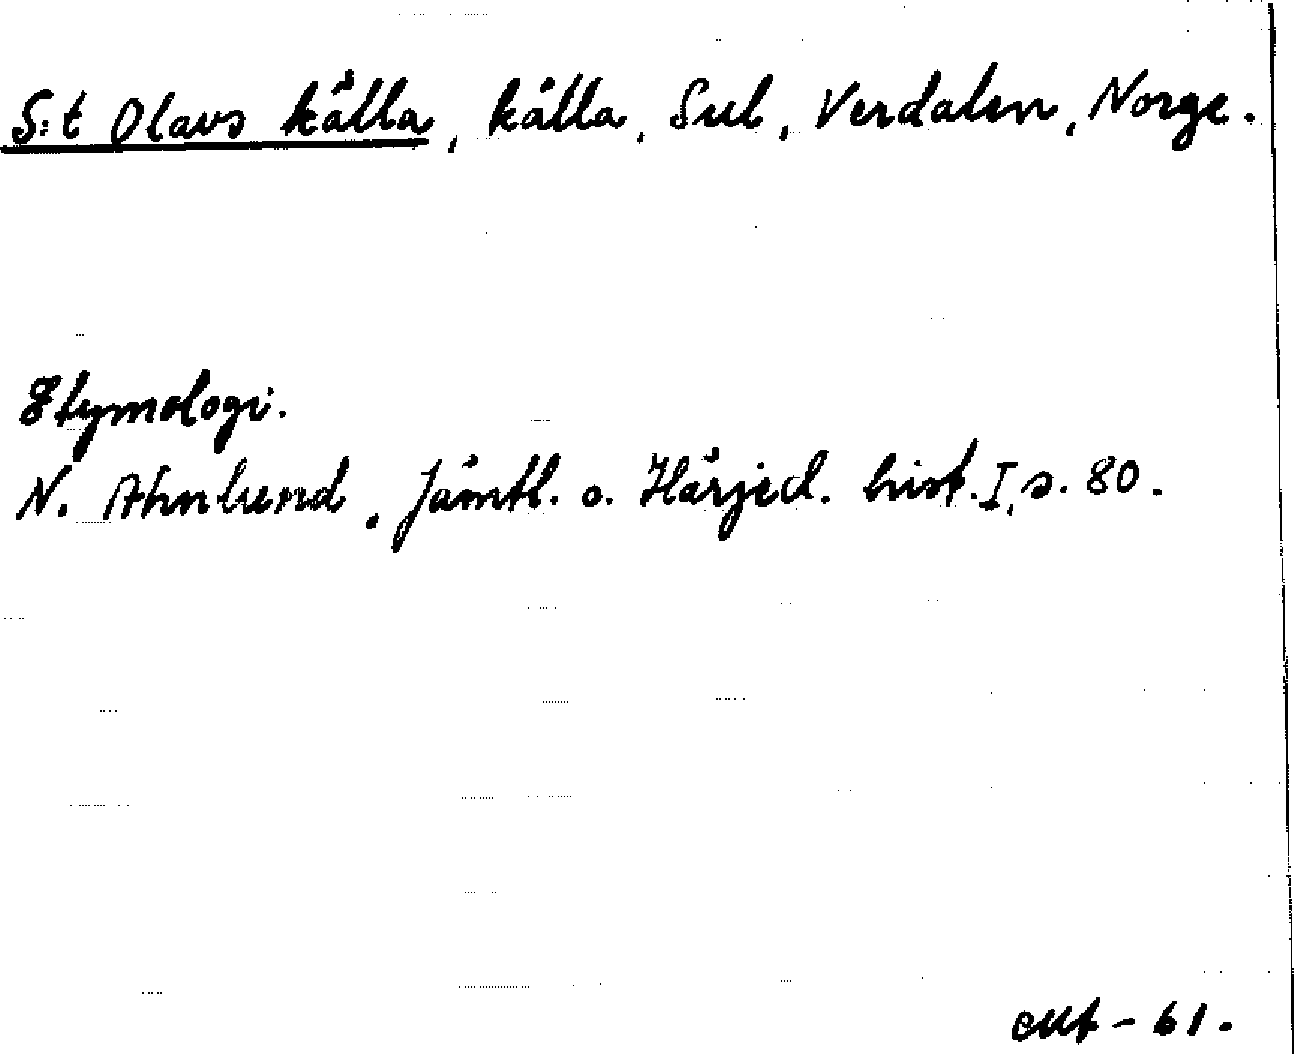 S:t Olavs källa, källa, Sul, Verdalen, Norge.
Etymologi.
N. Ahnlund, Jämtl. o. Härjed. hist. I, s. 80.
- 61.